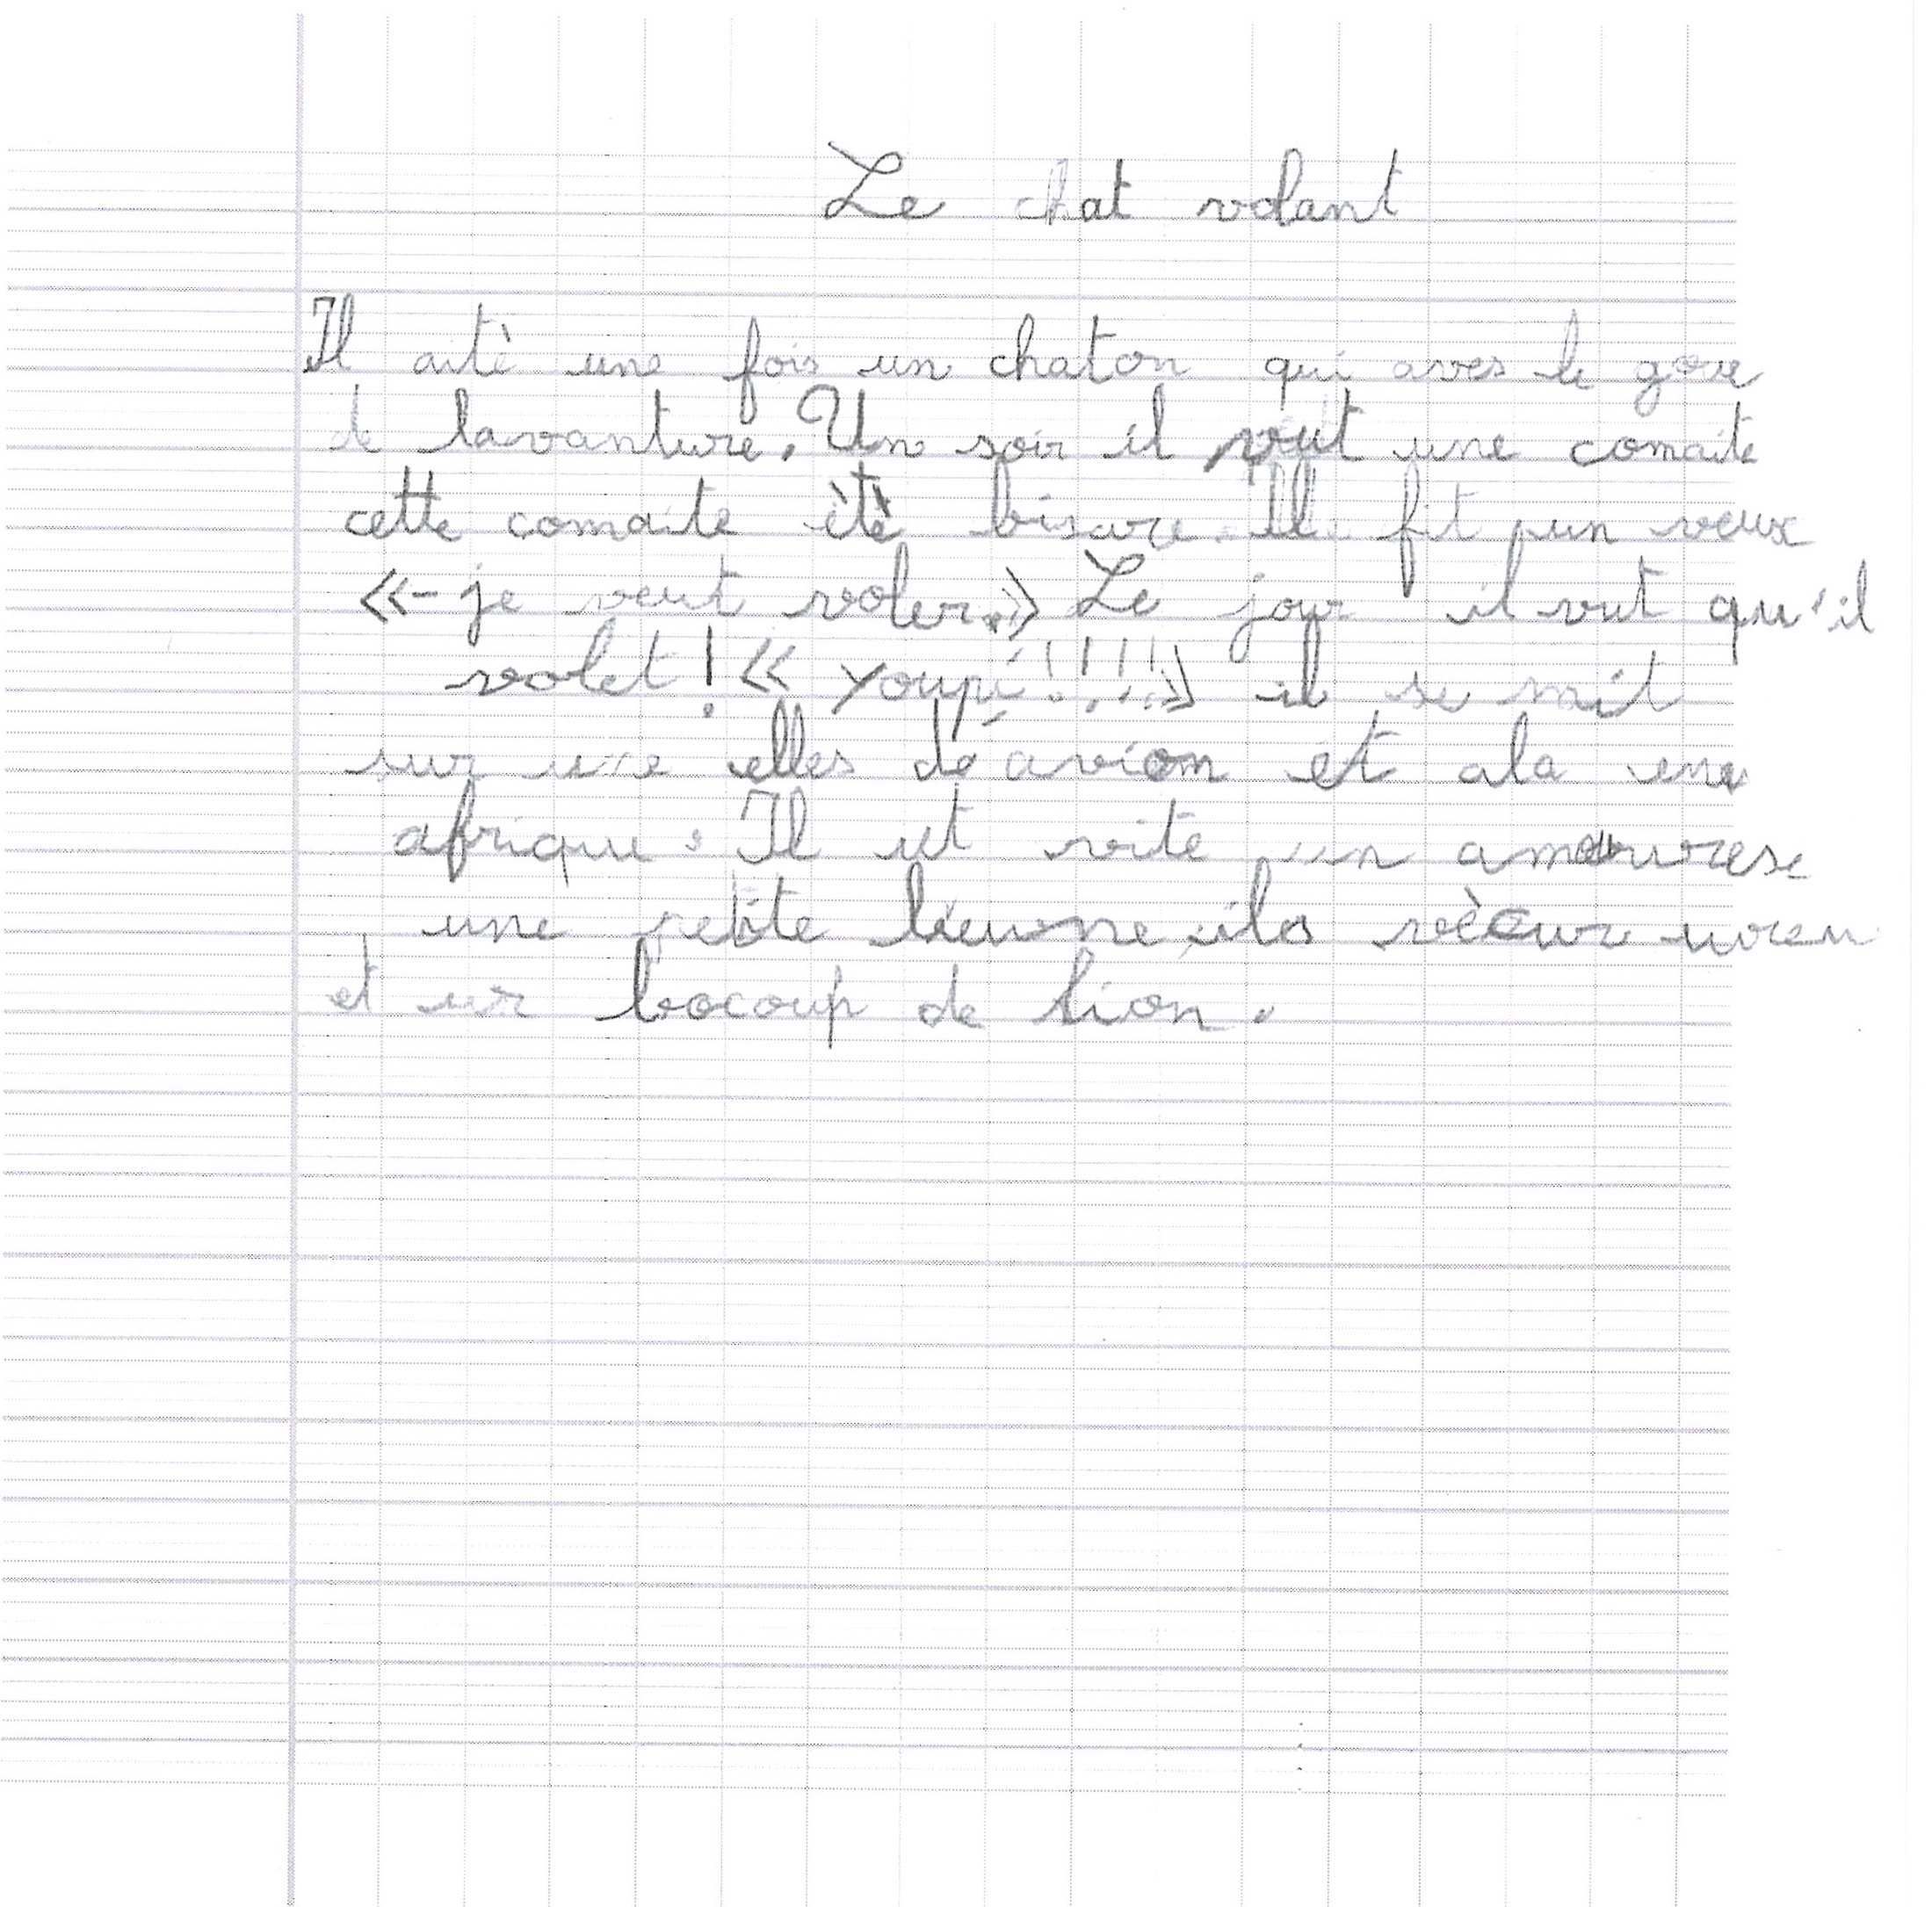 Le chat volant
Il aitè une fois un chaton qui aves le goue
de lavanture. Un soir il vut une comaite
cette comaite ètè bisare. Il fit un veux
«- je veut voler.» Le jour il vut qu'il
volet ! « youpi !!!!.» il se mit
sur une elles de avion et ala en
afrique. Il ut vite un amourese
une petite lieune ils vècur ureu
et ur bocoup de lion.